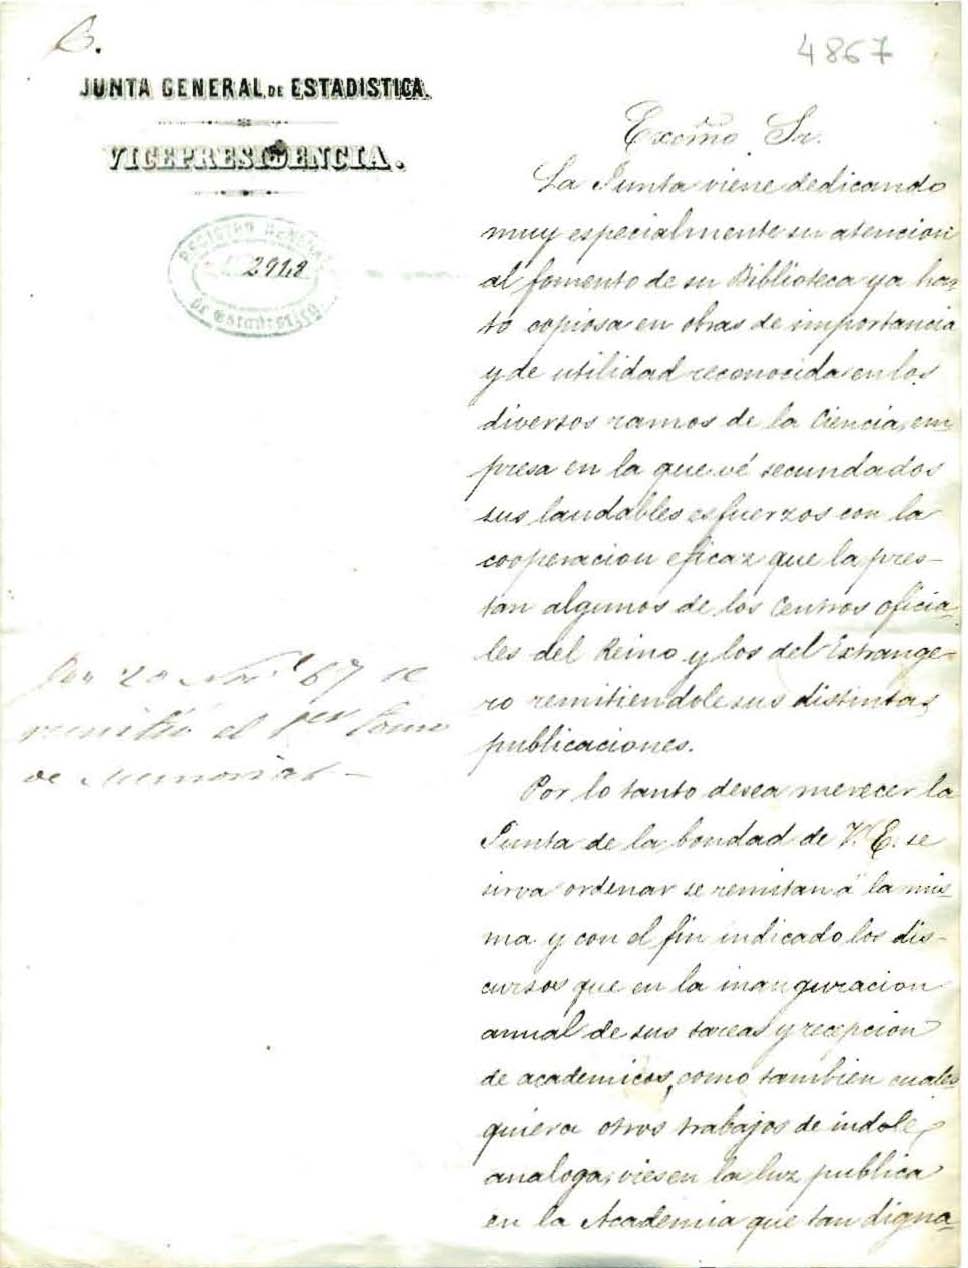 B.
4867
JUNTA GENERAL DE ESTADISTICA.
VICEPRESIDENCIA.
REGISTRO GENERAL
2918
de Estadistica
Excmo. Sr.
La Junta viene dedicando
muy especialmente su atencion
al fomento de su Biblioteca ya har-
to copiosa en obras de importancia
y de utilidad reconocida en los
diversos ramos de la Ciencia, em
presa en la que vé secundados
sus laudables esfuerzos con la
cooperacion eficaz que la pres-
tan algunos de los Centros oficia-
les del Reino y los del Extrange-
ro remitiendole sus distintas
publicaciones.
Por lo tanto desea merecer la
Junta de la bondad de V. E. se
sirva ordenar se remitan á la mis-
ma y con el fin indicado los dis-
cursos que en la inauguracion
anual de sus tareas y recepcion
de academicos, como tambien cuales
quiera otros trabajos de indole
analoga, viesen la luz publica
en la Academia que tan digna-
En 20 Nov. 67 se
remitió el 1er tomo
de Memorias